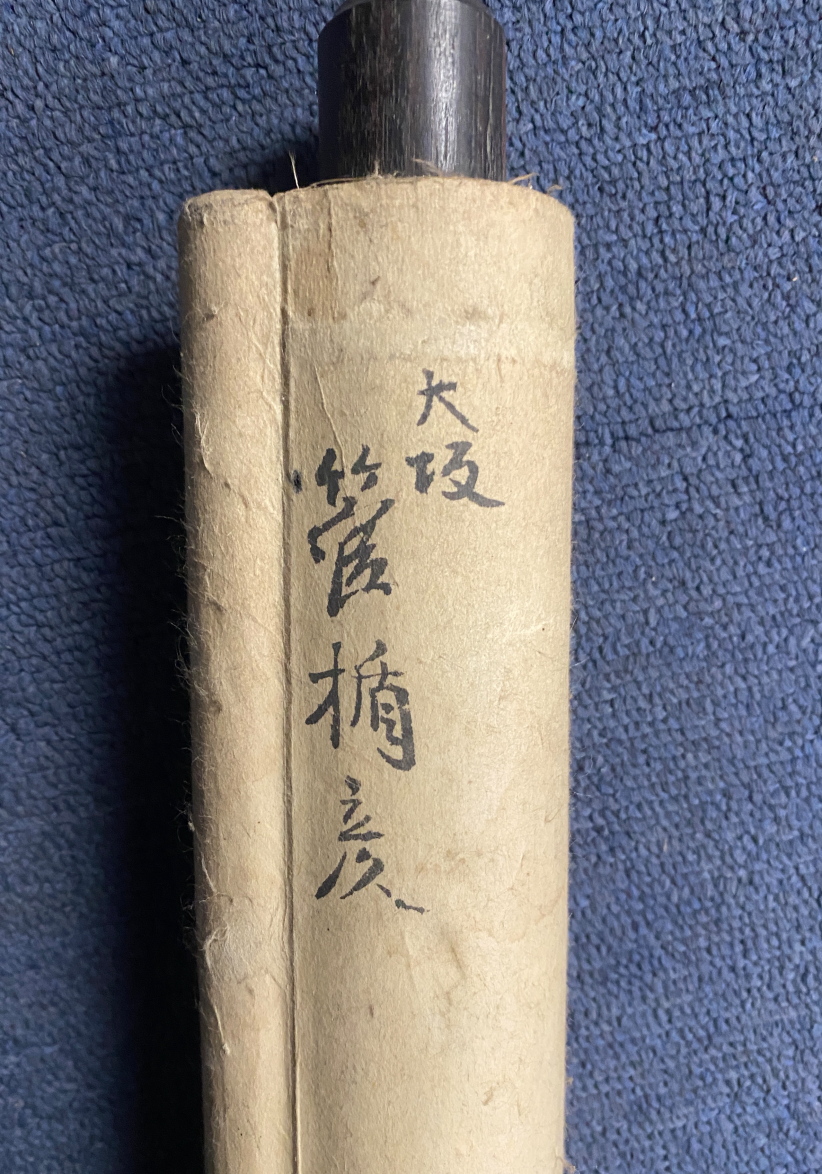 大坂
管楯彦